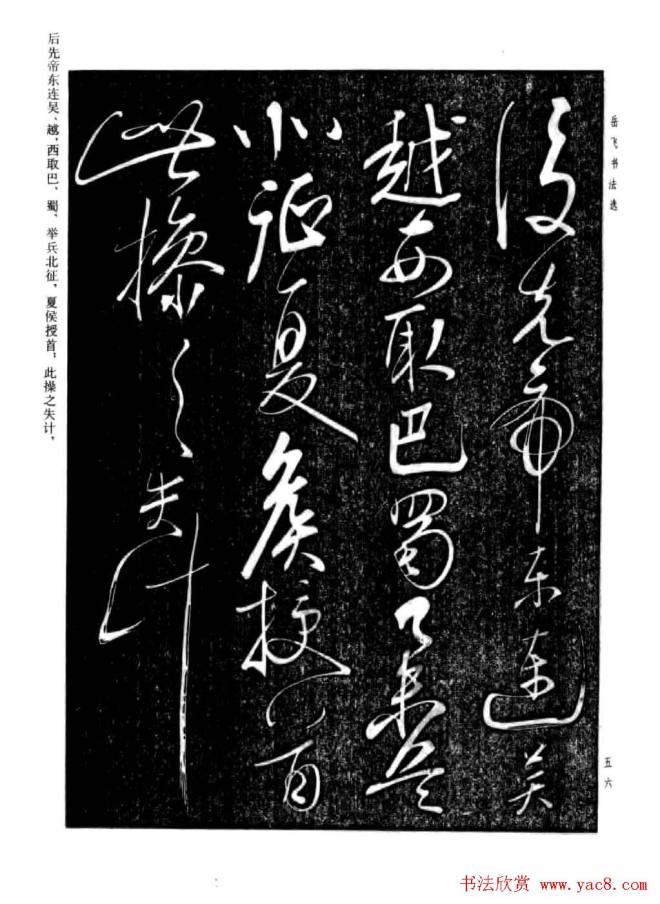 岳飞书法选
後先帝东连吴
越西取巴蜀举兵
北征夏侯授首
此操之失计
后先帝东连吴、越，西取巴、蜀，举兵北征，夏侯授首，此操之失计，
五六
书法欣赏 www.yac8.com